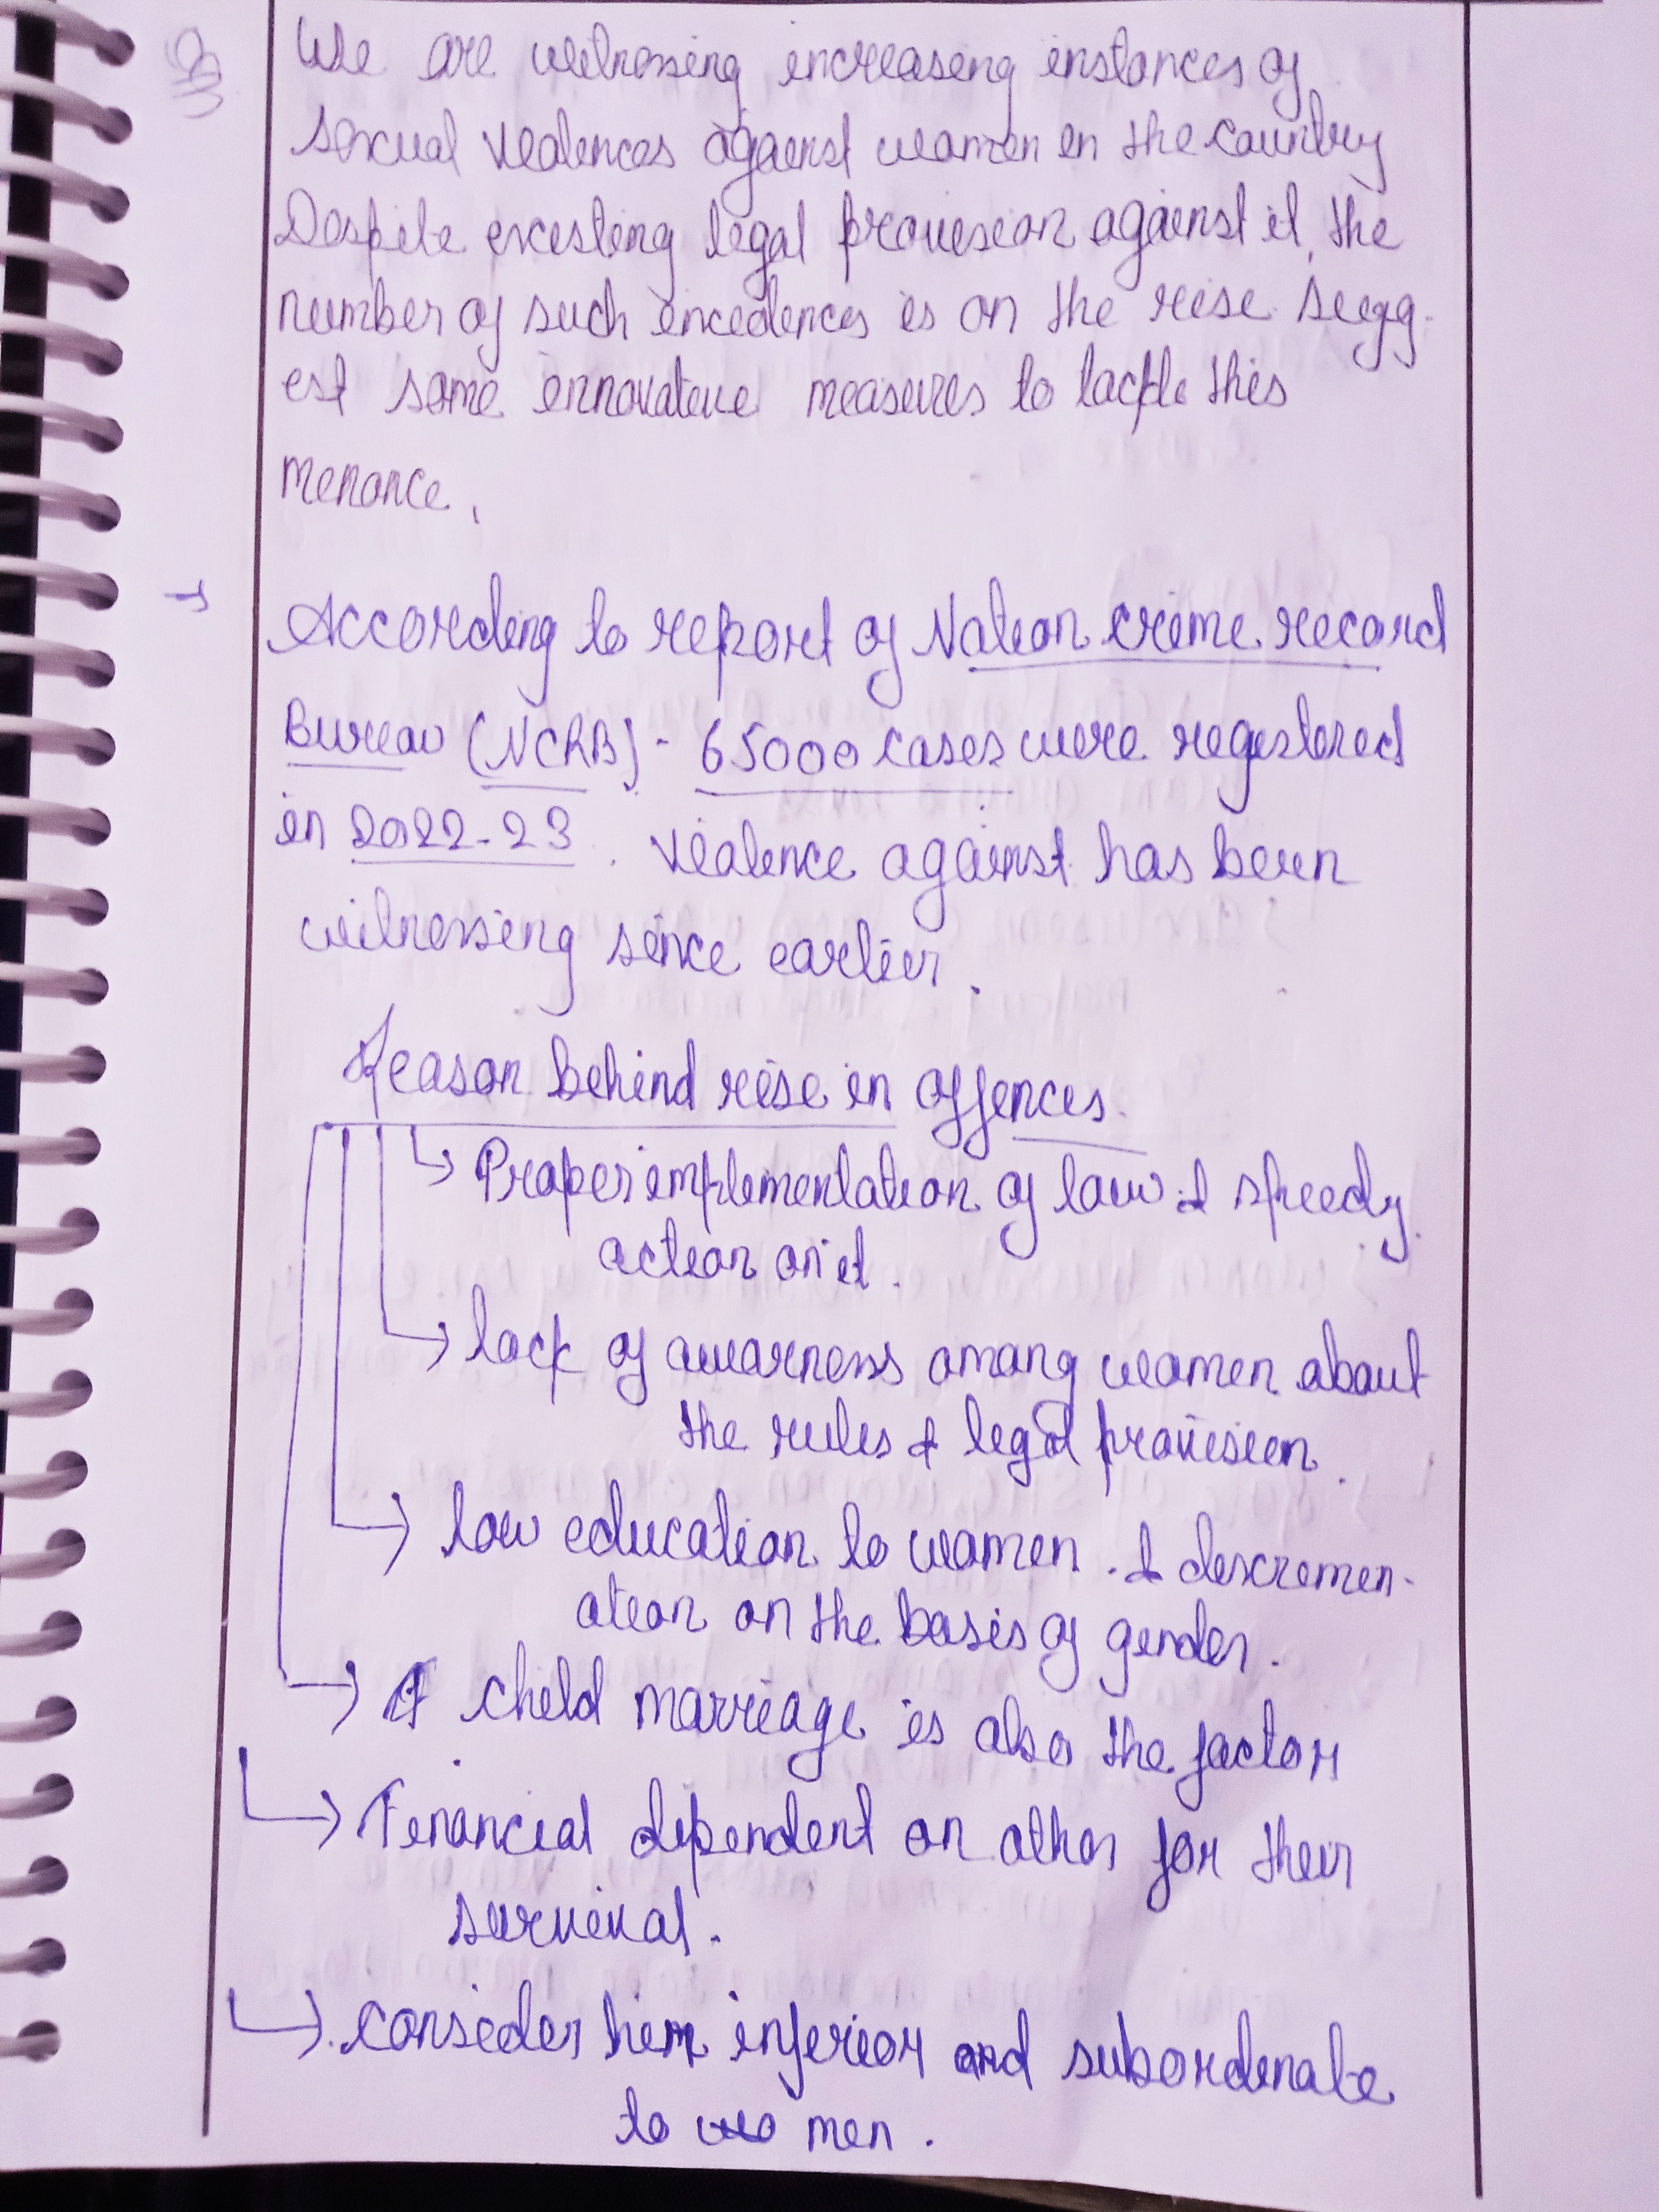 We are witnessing increasing instances of
sexual violences against women in the country
Despite existing legal provision against it, the
number of such incidences is on the rise. Sugg-
est some innovative measures to tackle this
menance.
According to report of Nation crime record
Bureau (NCRB) - 65000 cases were registered
in 2022-23. Violence against has been
witnessing since earlier.
Reason behind rise in offences.
↳ Proper implementation of law & speedy
action on it.
→ lack of awarness among women about
the rules & legal provision.
→ low education to women. & discrimin-
ation on the basis of gender.
→ child marriage is also the factor
→ Financial dependent on other for their
survival.
→ consider him inferior and subordinate
to men.